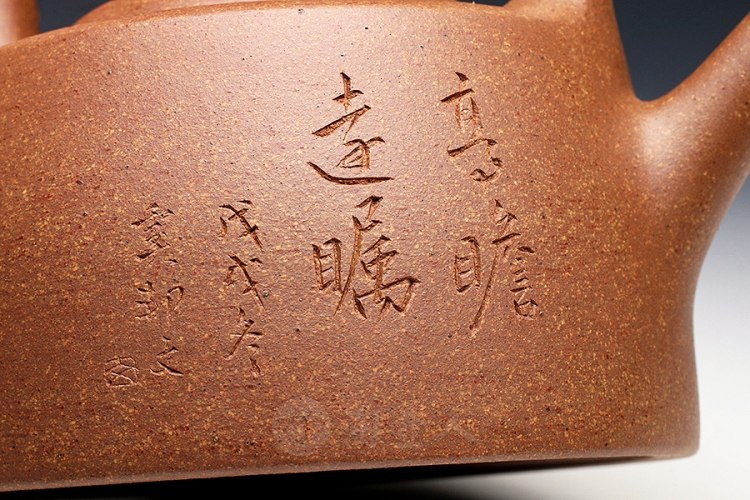 高瞻
遠矚
戊戌冬
卿文